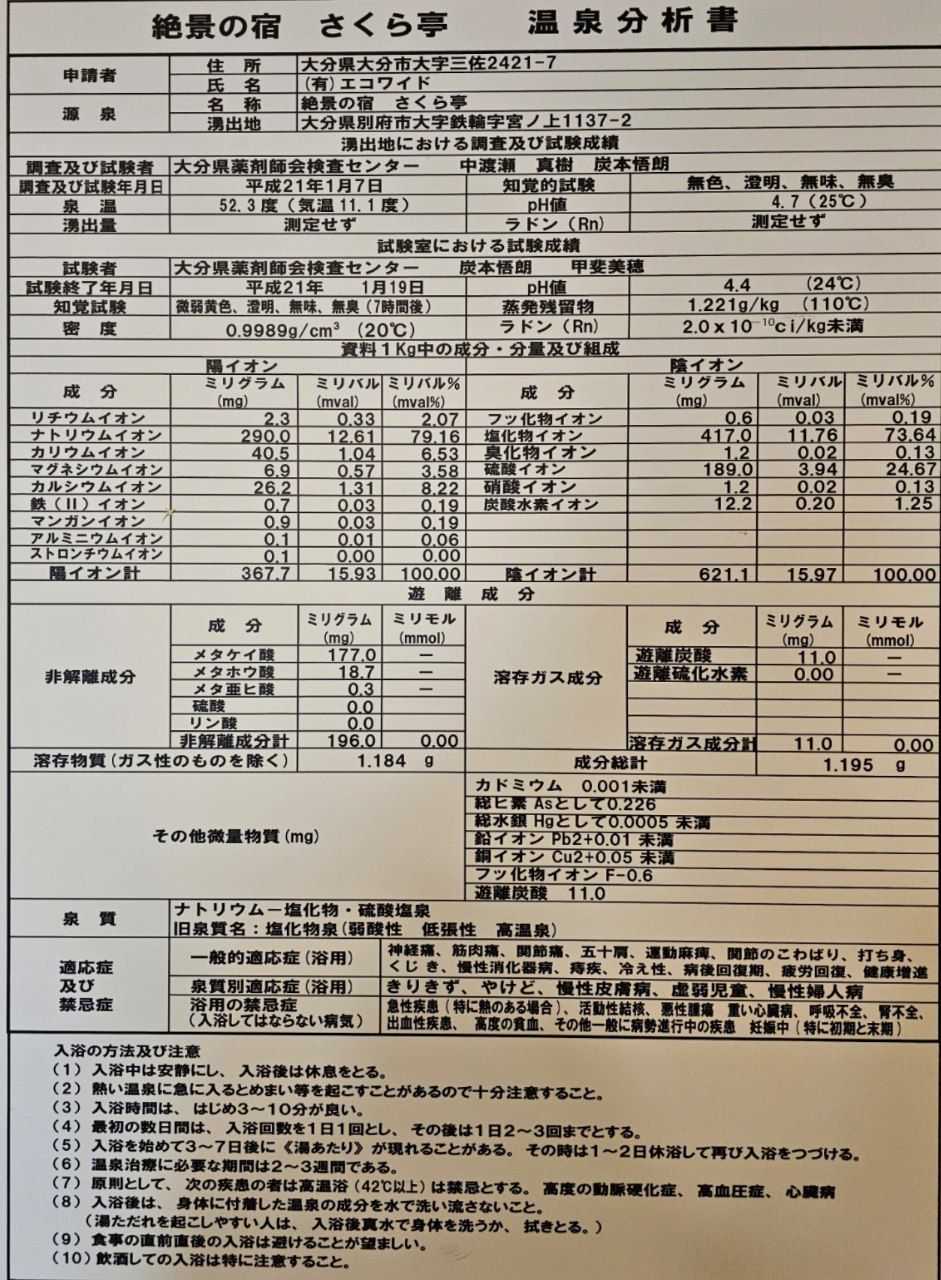 絶景の宿 さくら亭 温泉分析書
申請者 住所 大分県大分市大字三佐2421-7
氏名 (有)エコワイド
源泉 名称 絶景の宿 さくら亭
湧出地 大分県別府市大字鉄輪字宮ノ上1137-2
湧出地における調査及び試験成績
調査及び試験者 大分県薬剤師会検査センター 中渡瀬 真樹 炭本悟朗
調査及び試験年月日 平成21年1月7日 知覚的試験 無色、澄明、無味、無臭
泉温 52.3度(気温11.1度) pH値 4.7(25℃)
湧出量 測定せず ラドン(Rn) 測定せず
試験室における試験成績
試験者 大分県薬剤師会検査センター 炭本悟朗 甲斐美穂
試験終了年月日 平成21年 1月19日 pH値 4.4 (24℃)
知覚試験 微弱黄色、澄明、無味、無臭(7時間後) 蒸発残留物 1.221g/kg (110℃)
密度 0.9989g/cm³ (20℃) ラドン(Rn) 2.0x10⁻¹⁰ci/kg未満
資料1Kg中の成分・分量及び組成
陽イオン 陰イオン
成分 ミリグラム(mg) ミリバル(mval) ミリバル%(mval%) 成分 ミリグラム(mg) ミリバル(mval) ミリバル%(mval%)
リチウムイオン 2.3 0.33 2.07 フッ化物イオン 0.6 0.03 0.19
ナトリウムイオン 290.0 12.61 79.16 塩化物イオン 417.0 11.76 73.64
カリウムイオン 40.5 1.04 6.53 臭化物イオン 1.2 0.02 0.13
マグネシウムイオン 6.9 0.57 3.58 硫酸イオン 189.0 3.94 24.67
カルシウムイオン 26.2 1.31 8.22 硝酸イオン 1.2 0.02 0.13
鉄(II)イオン 0.7 0.03 0.19 炭酸水素イオン 12.2 0.20 1.25
マンガンイオン 0.9 0.03 0.19
アルミニウムイオン 0.1 0.01 0.06
ストロンチウムイオン 0.1 0.00 0.00
陽イオン計 367.7 15.93 100.00 陰イオン計 621.1 15.97 100.00
遊離成分
非解離成分 成分 ミリグラム(mg) ミリモル(mmol) 溶存ガス成分 成分 ミリグラム(mg) ミリモル(mmol)
メタケイ酸 177.0 － 遊離炭酸 11.0 －
メタホウ酸 18.7 － 遊離硫化水素 0.00 －
メタ亜ヒ酸 0.3 －
硫酸 0.0
リン酸 0.0
非解離成分計 196.0 0.00 溶存ガス成分計 11.0 0.00
溶存物質(ガス性のものを除く) 1.184 g 成分総計 1.195 g
その他微量物質(mg)
カドミウム 0.001未満
総ヒ素 Asとして0.226
総水銀 Hgとして0.0005 未満
鉛イオン Pb2+0.01 未満
銅イオン Cu2+0.05 未満
フッ化物イオン F-0.6
遊離炭酸 11.0
泉質 ナトリウム－塩化物・硫酸塩泉
旧泉質名：塩化物泉(弱酸性 低張性 高温泉)
適応症及び禁忌症
一般的適応症(浴用) 神経痛、筋肉痛、関節痛、五十肩、運動麻痺、関節のこわばり、打ち身、
くじき、慢性消化器病、痔疾、冷え性、病後回復期、疲労回復、健康増進
泉質別適応症(浴用) きりきず、やけど、慢性皮膚病、虚弱児童、慢性婦人病
浴用の禁忌症(入浴してはならない病気) 急性疾患(特に熱のある場合)、活動性結核、悪性腫瘍 重い心臓病、呼吸不全、腎不全、
出血性疾患、高度の貧血、その他一般に病勢進行中の疾患 妊娠中(特に初期と末期)
入浴の方法及び注意
(1) 入浴中は安静にし、入浴後は休息をとる。
(2) 熱い温泉に急に入るとめまい等を起こすことがあるので十分注意すること。
(3) 入浴時間は、はじめ3～10分が良い。
(4) 最初の数日間は、入浴回数を1日1回とし、その後は1日2～3回までとする。
(5) 入浴を始めて3～7日後に《湯あたり》が現れることがある。その時は1～2日休浴して再び入浴をつづける。
(6) 温泉治療に必要な期間は2～3週間である。
(7) 原則として、次の疾患の者は高温浴(42℃以上)は禁忌とする。高度の動脈硬化症、高血圧症、心臓病
(8) 入浴後は、身体に付着した温泉の成分を水で洗い流さないこと。
(湯ただれを起こしやすい人は、入浴後真水で身体を洗うか、拭きとる。)
(9) 食事の直前直後の入浴は避けることが望ましい。
(10) 飲酒しての入浴は特に注意すること。